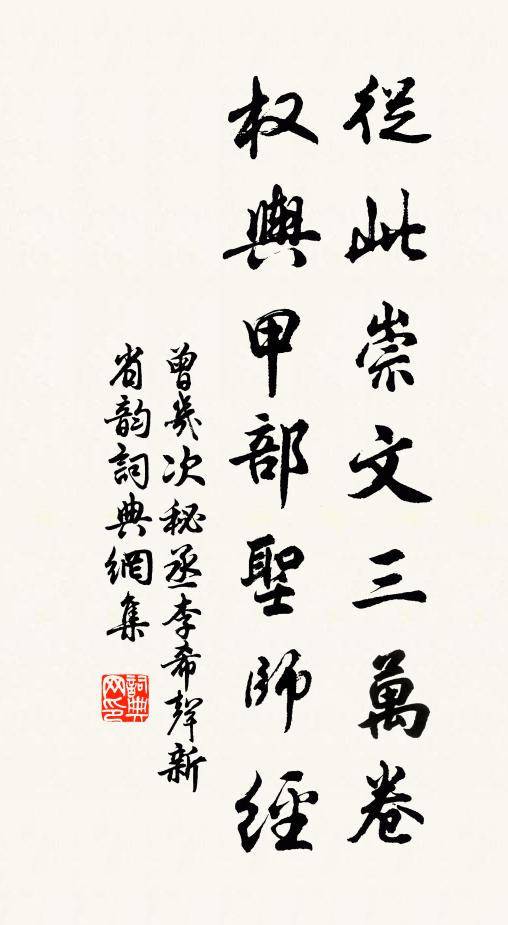 從此崇文三萬卷
权輿甲部聖師經
曾幾次秘丞李希聲新
省韵詞典網集
詞典网印